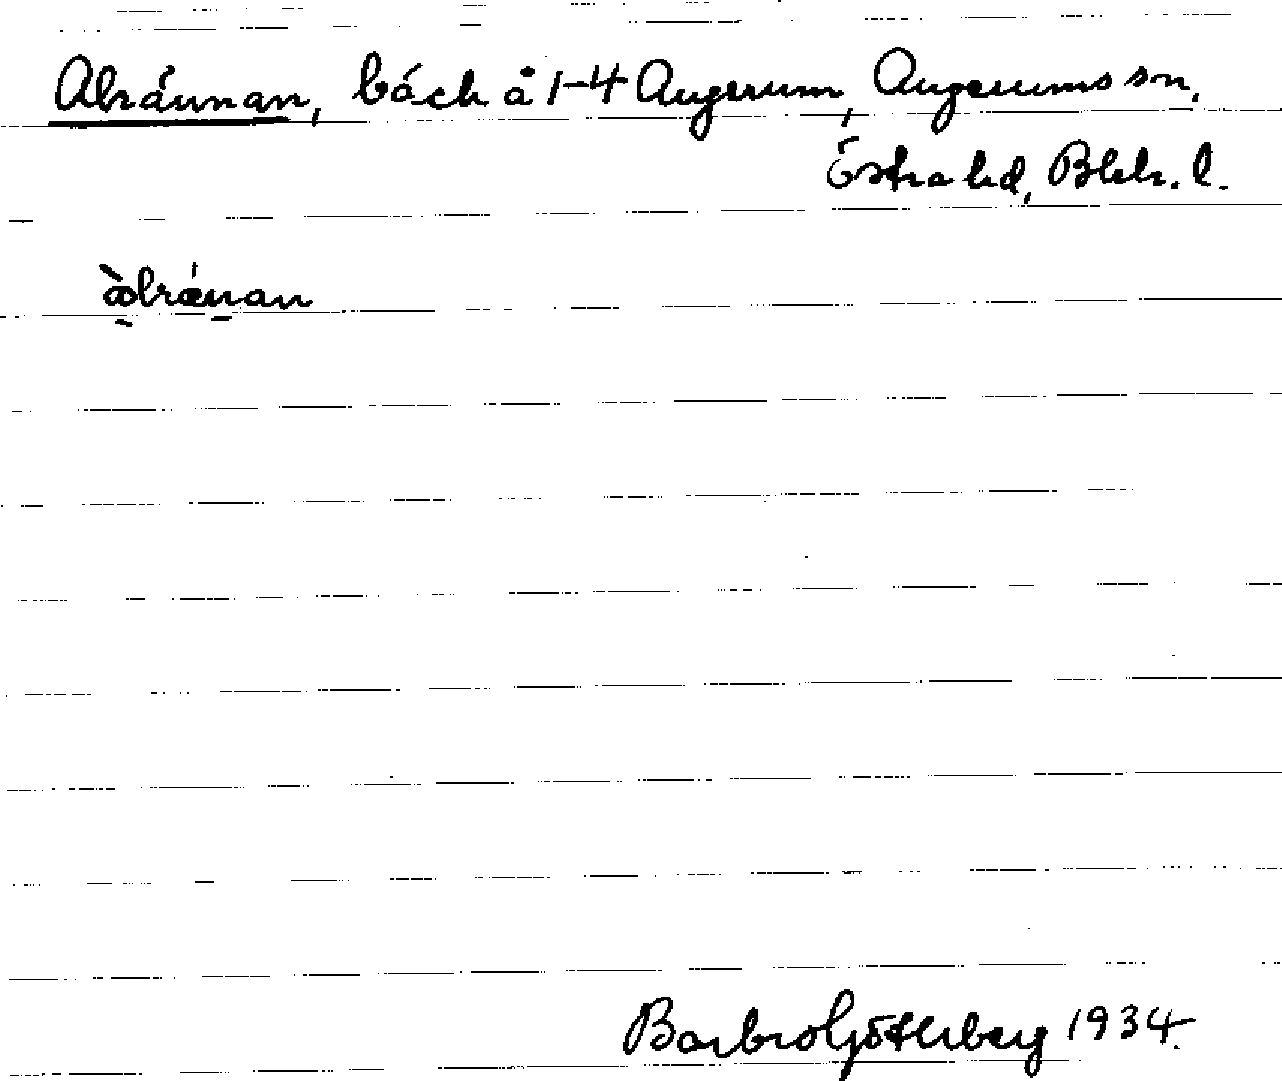 Alrännan, bäck å 1-4 Augerum, Augerums sn,
Östra hd, Blek. l.
Barbro Götherberg 1934.